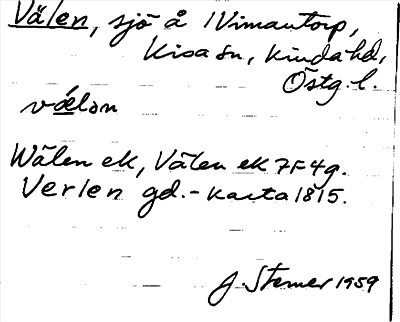 Välen, sjö å Vimantorp,
Kisa sn, Kinda hd,
Östg. l.
væ̀lən
Wälen ek, Välen ek 7F4g.
Verlen gd.-karta 1815.
J. Sterner 1959